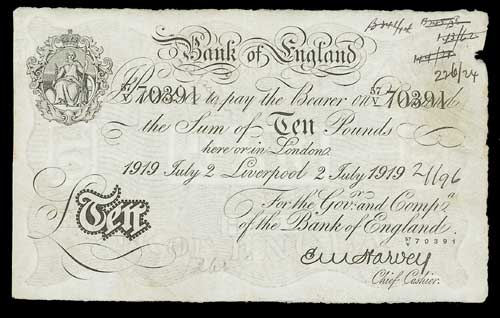 Bank of England
226/24
57/V 70391 to pay the Bearer on 57/V 70391
the Sum of Ten Pounds
here or in London.
1919 July 2 Liverpool 2 July 1919
For the Govr. and Compa.
Ten of the Bank of England.
57/V 70391
E M Harvey
Chief Cashier.